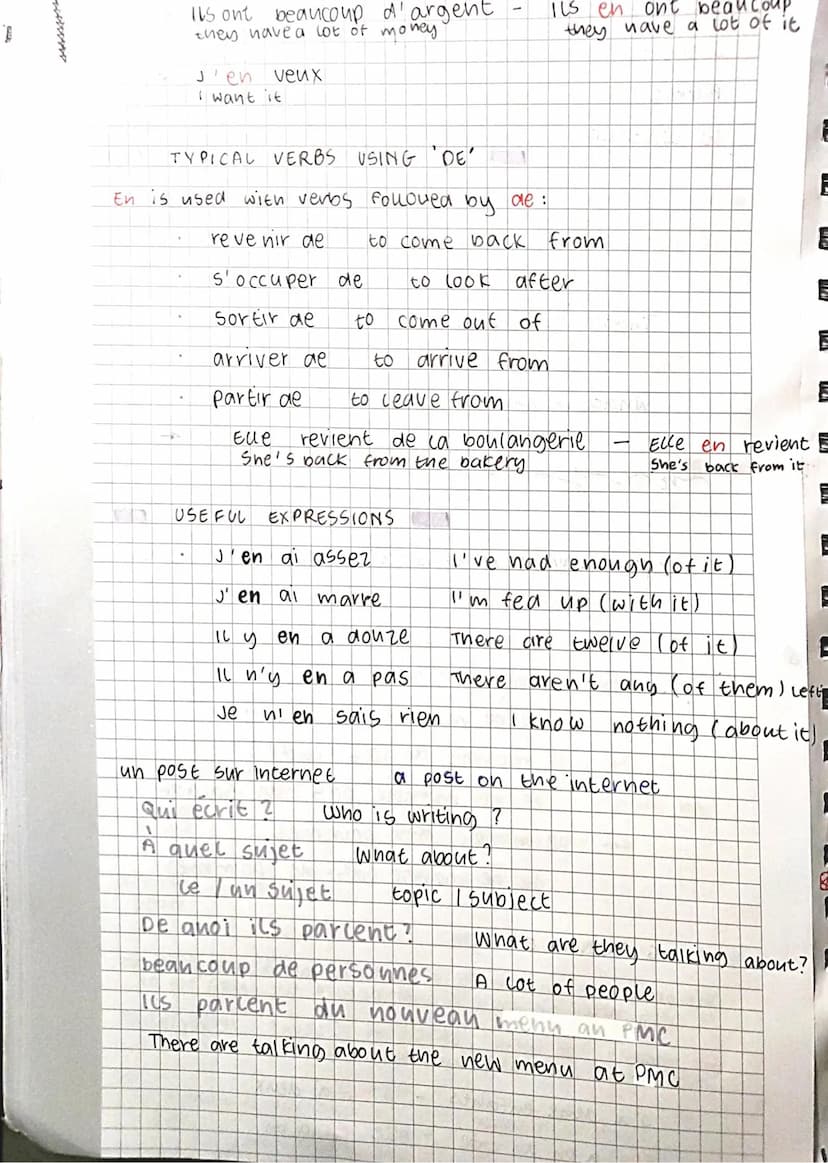 ils ont beaucoup d'argent - ils en ont beaucoup
they have a lot of money they have a lot of it
J'en veux
i want it
TYPICAL VERBS USING 'DE'
En is used with verbs followed by de:
· revenir de to come back from
· s'occuper de to look after
· sortir de to come out of
· arriver de to arrive from
· partir de to leave from
Elle revient de la boulangerie - Elle en revient
She's back from the bakery She's back from it
USEFUL EXPRESSIONS
· J'en ai assez I've had enough (of it)
J'en ai marre I'm fed up (with it)
Il y en a douze There are twelve (of it)
Il n'y en a pas There aren't any (of them) left
Je n'en sais rien I know nothing (about it)
un post sur internet a post on the internet
Qui écrit ? Who is writing ?
À quel sujet What about?
le / un sujet topic / subject
De quoi ils parlent? What are they talking about?
beaucoup de personnes A lot of people
Ils parlent du nouveau menu au PMC
There are talking about the new menu at PMC